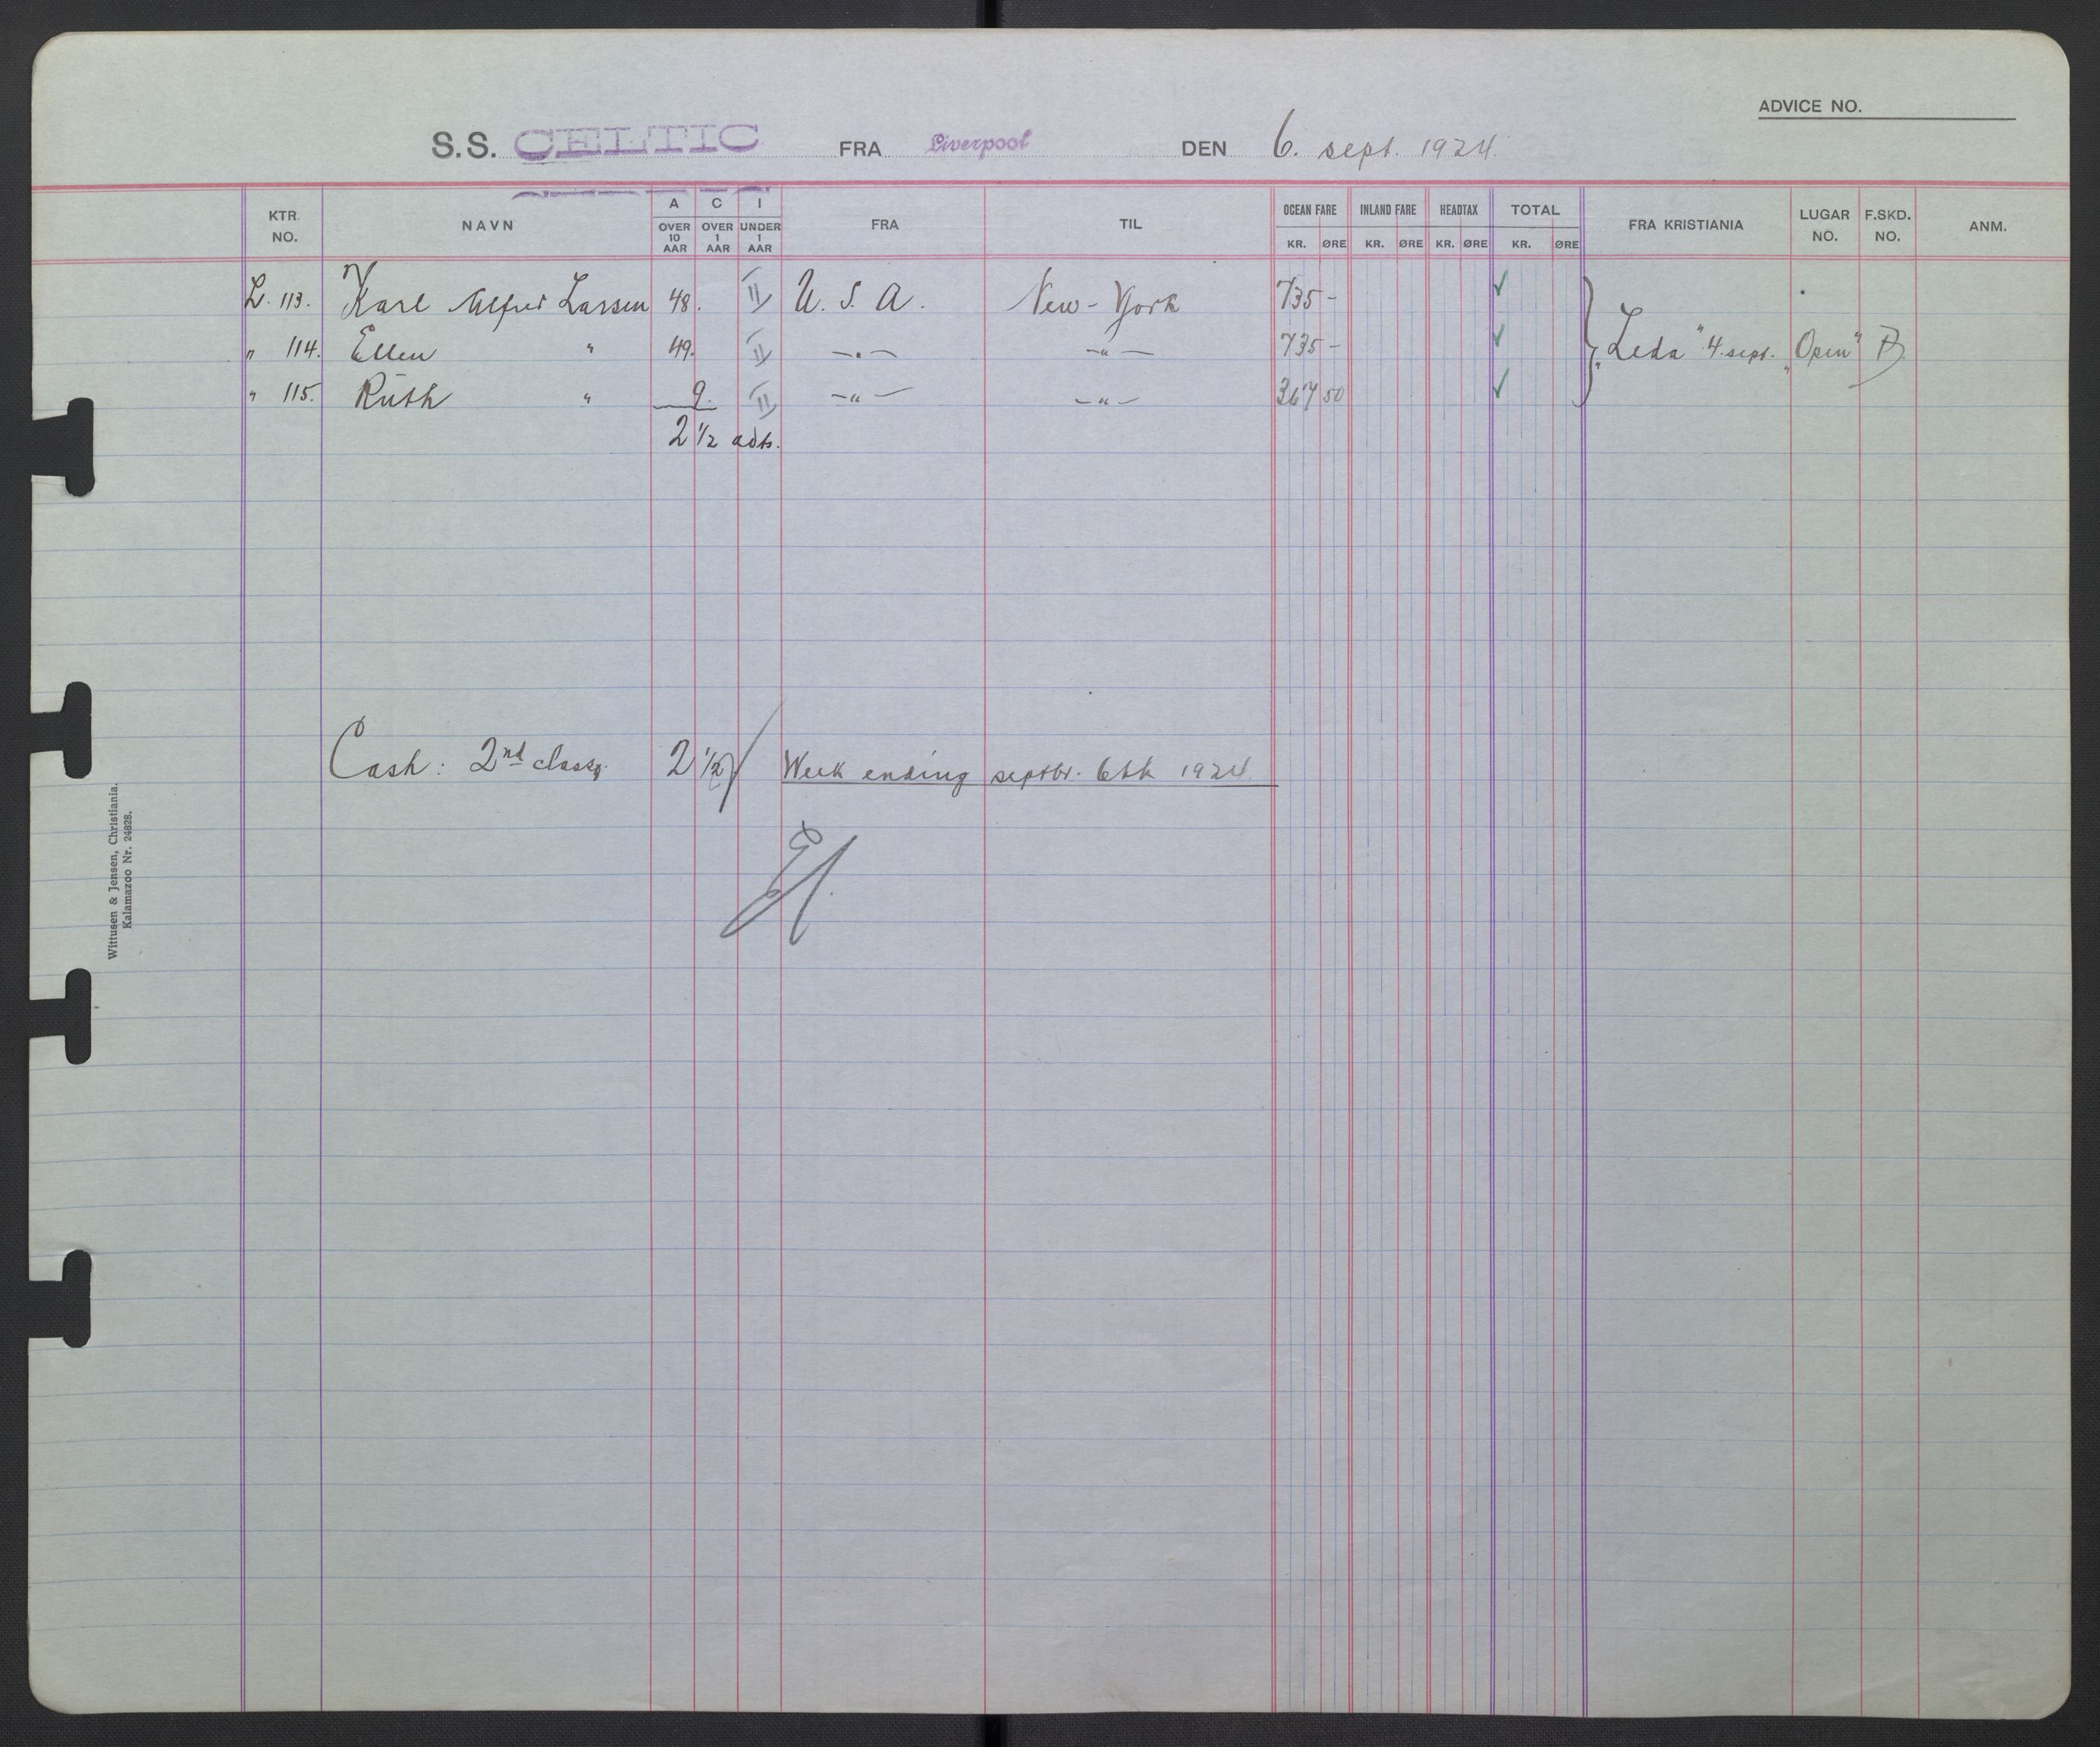 ADVICE NO.
S.S. CELTIC FRA Liverpool DEN 6. sept. 1924.
KTR. NO. NAVN A OVER 10 AAR C OVER 1 AAR I UNDER 1 AAR FRA TIL OCEAN FARE KR. ØRE INLAND FARE KR. ØRE HEADTAX KR. ØRE TOTAL KR. ØRE FRA KRISTIANIA LUGAR NO. F.SKD. NO. ANM.
L. 113. Karl Alfred Larsen 48. II U. S. A. New-York 735 - ✓
" 114. Ellen " 49. II -"- -"- 735 - ✓ "Leda" 4. sept. "Open"
" 115. Ruth " 9. II -"- -"- 367 50 ✓
2 1/2 adts.
Cash: 2nd class 2 1/2 Week ending septbr. 6th 1924.
Wittusen & Jensen, Christiania.
Kalamazoo Nr. 24828.